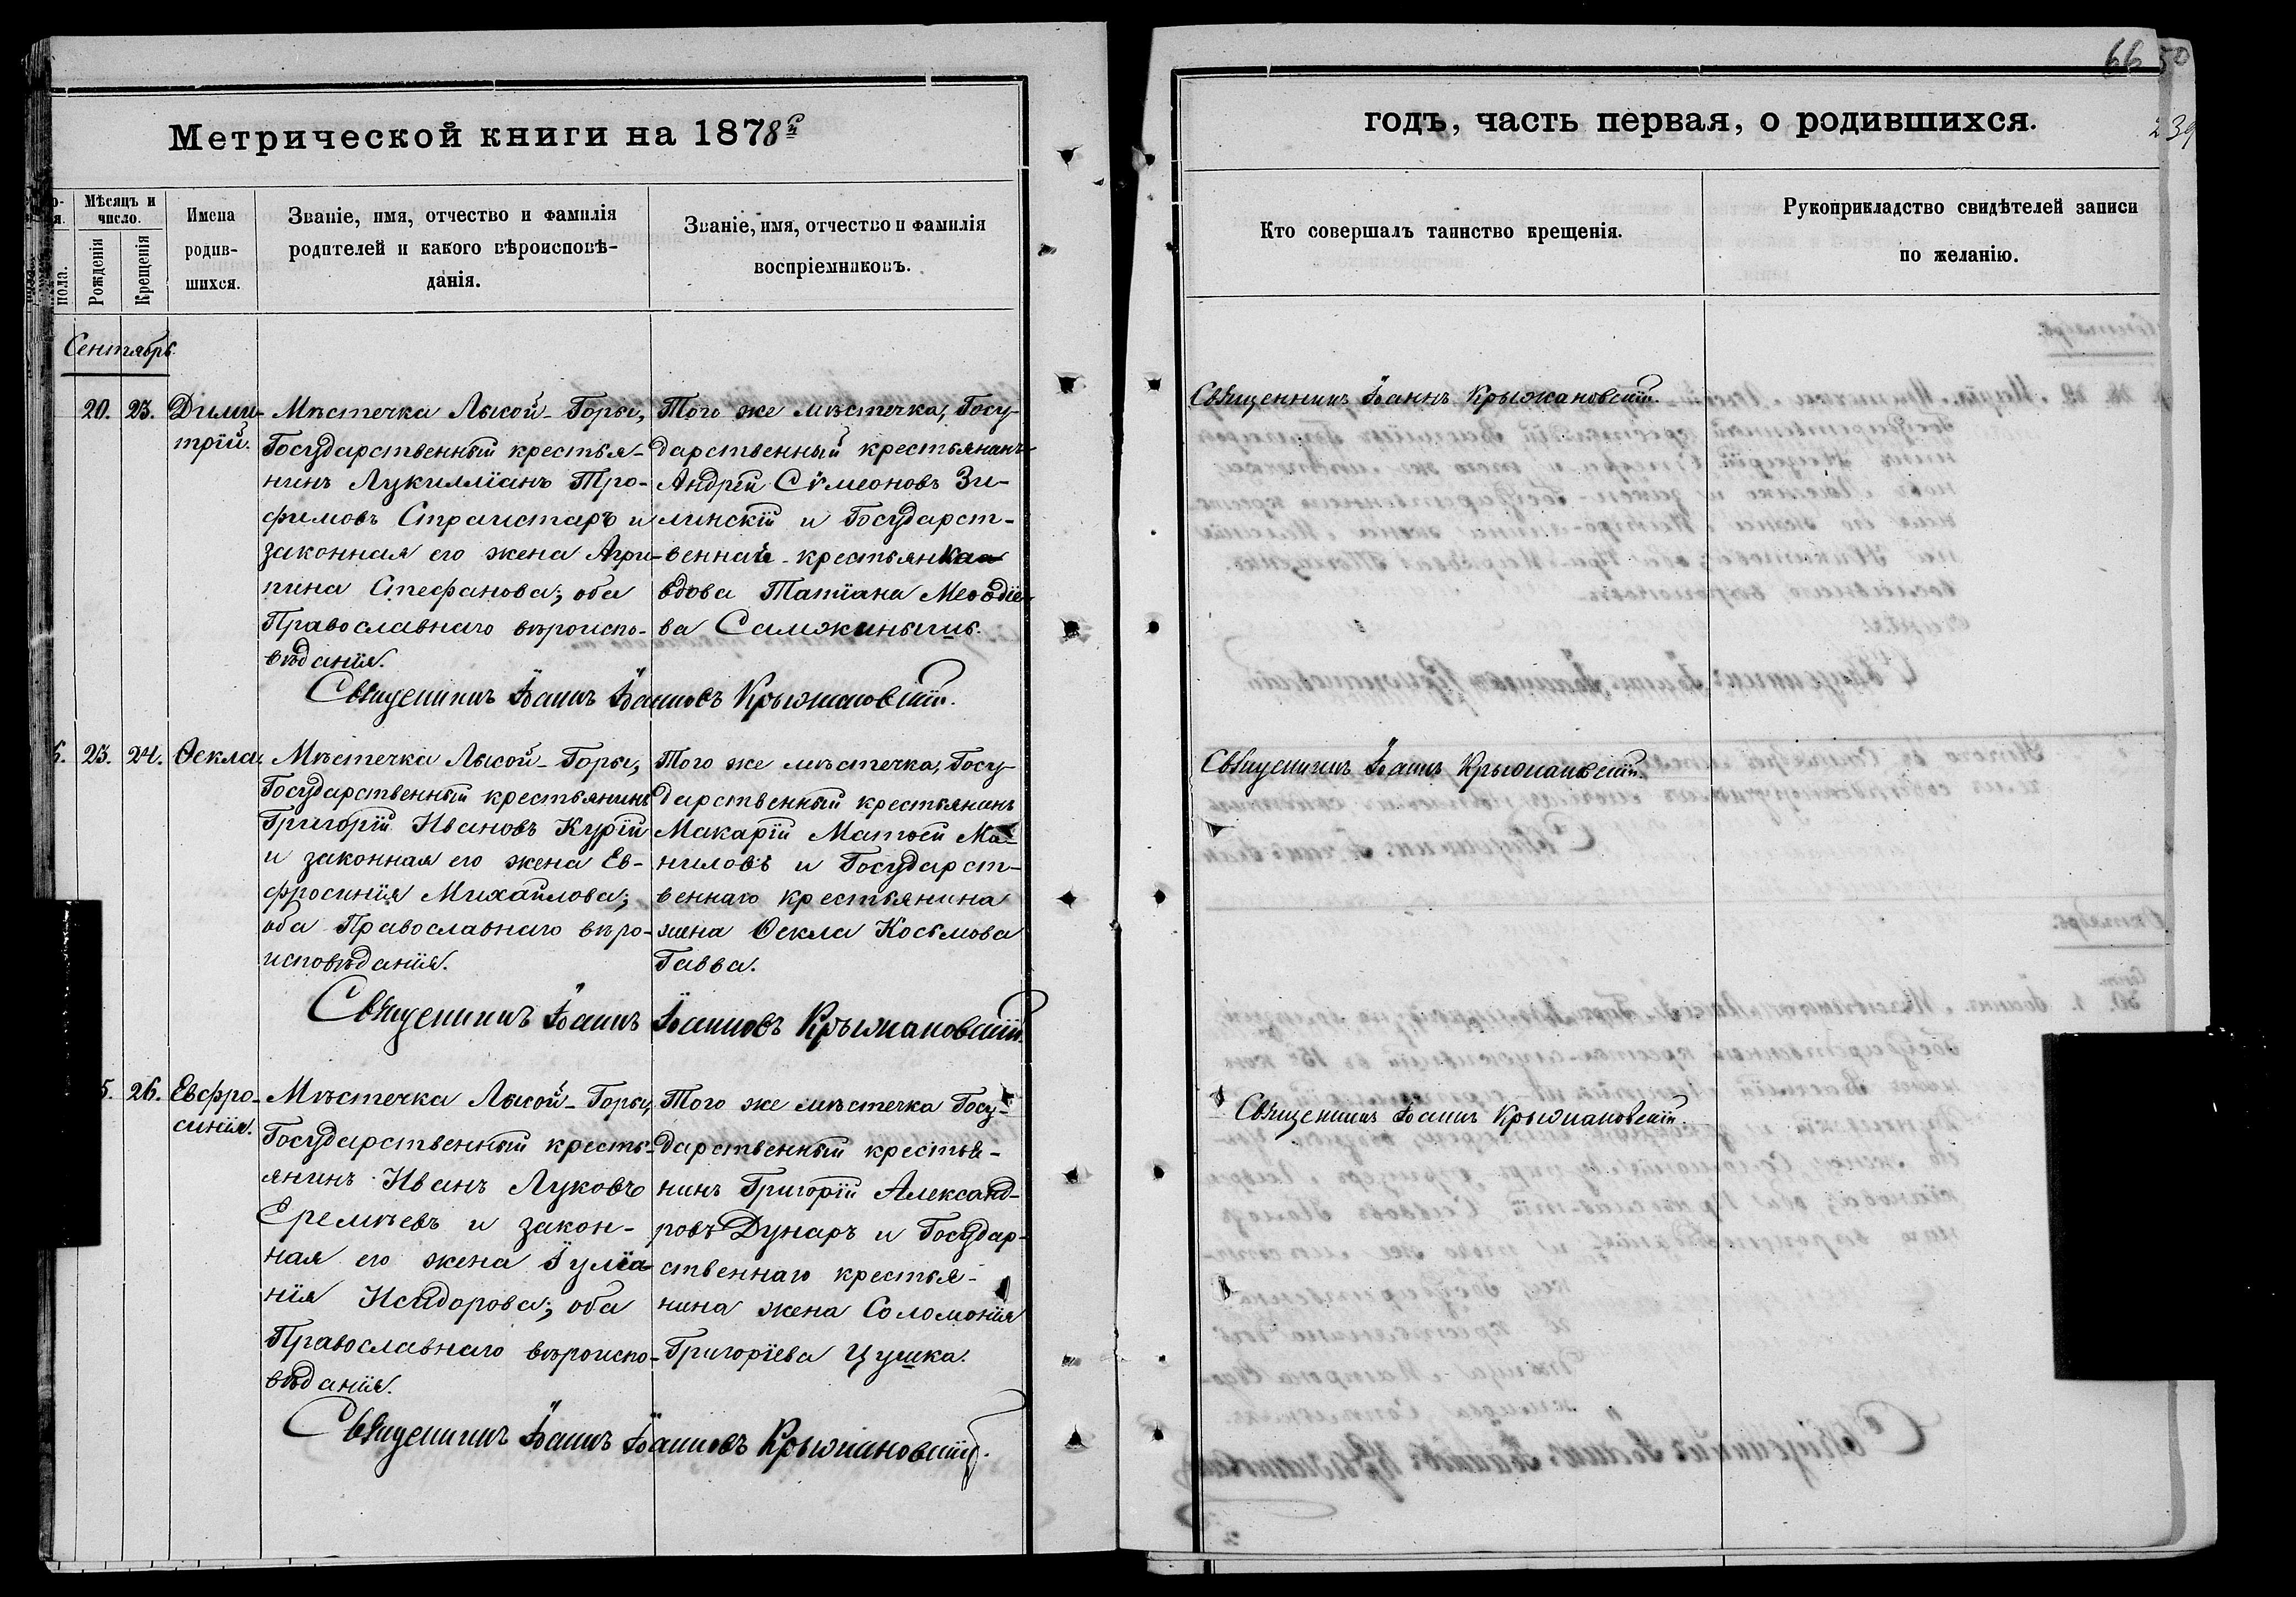 66 50
239
Метрической книги на 1878й
годъ, часть первая, о родившихся.
Мѣсяцъ и число.
Рожденія
Крещенія
пола.
Имена родив-шихся.
Званіе, имя, отчество и фамилія
родителей и какого вѣроисповѣ-
данія.
Званіе, имя, отчество и фамилія
воспріемниковъ.
Кто совершалъ таинство крещенія.
Рукоприкладство свидѣтелей записи
по желанію.
Сентябрь
20. 23. Дими-
трій.
Мѣстечка Лысой-Горы,
Государственный крестья-
нинъ Лукилліанъ Тро-
фимовъ Страистаръ и
законная его жена Агри-
пина Стефанова; оба
Православнаго вѣроиспо-
вѣданія.
Того же мѣстечка, Госу-
дарственный крестьянинъ
Андрей Сѵмеоновъ Зи-
линскій и Государст-
венная крестьянка
вдова Татіана Меѳодіе-
ва Самжинышъ.
Священникъ Іоаннъ Іоанновъ Крыжановскій.
Священникъ Іоаннъ Крыжановскій.
23. 24. Ѳекла.
Мѣстечка Лысой-Горы,
Государственный крестьянинъ
Григорій Ивановъ Курій
и законная его жена Ев-
фросинія Михайлова;
оба Православнаго вѣро-
исповѣданія.
Того же мѣстечка, Госу-
дарственный крестьянинъ
Макарій Матѳей Ма-
ниловъ и Государст-
веннаго крестьянина
жена Ѳекла Косьмова
Гавва.
Священникъ Іоаннъ Іоанновъ Крыжановскій.
Священникъ Іоаннъ Крыжановскій.
5. 26. Евфро-
синія.
Мѣстечка Лысой-Горы,
Государственный кресть-
янинъ Иванъ Луковъ
Еремѣевъ и закон-
ная его жена Іуліа-
нія Исидорова; оба
Православнаго вѣроиспо-
вѣданія.
Того же мѣстечка Госу-
дарственный крестья-
нинъ Григорій Александ-
ровъ Дунаръ и Государ-
ственнаго крестья-
нина жена Соломонія
Григоріева Цушка.
Священникъ Іоаннъ Іоанновъ Крыжановскій.
Священникъ Іоаннъ Крыжановскій.